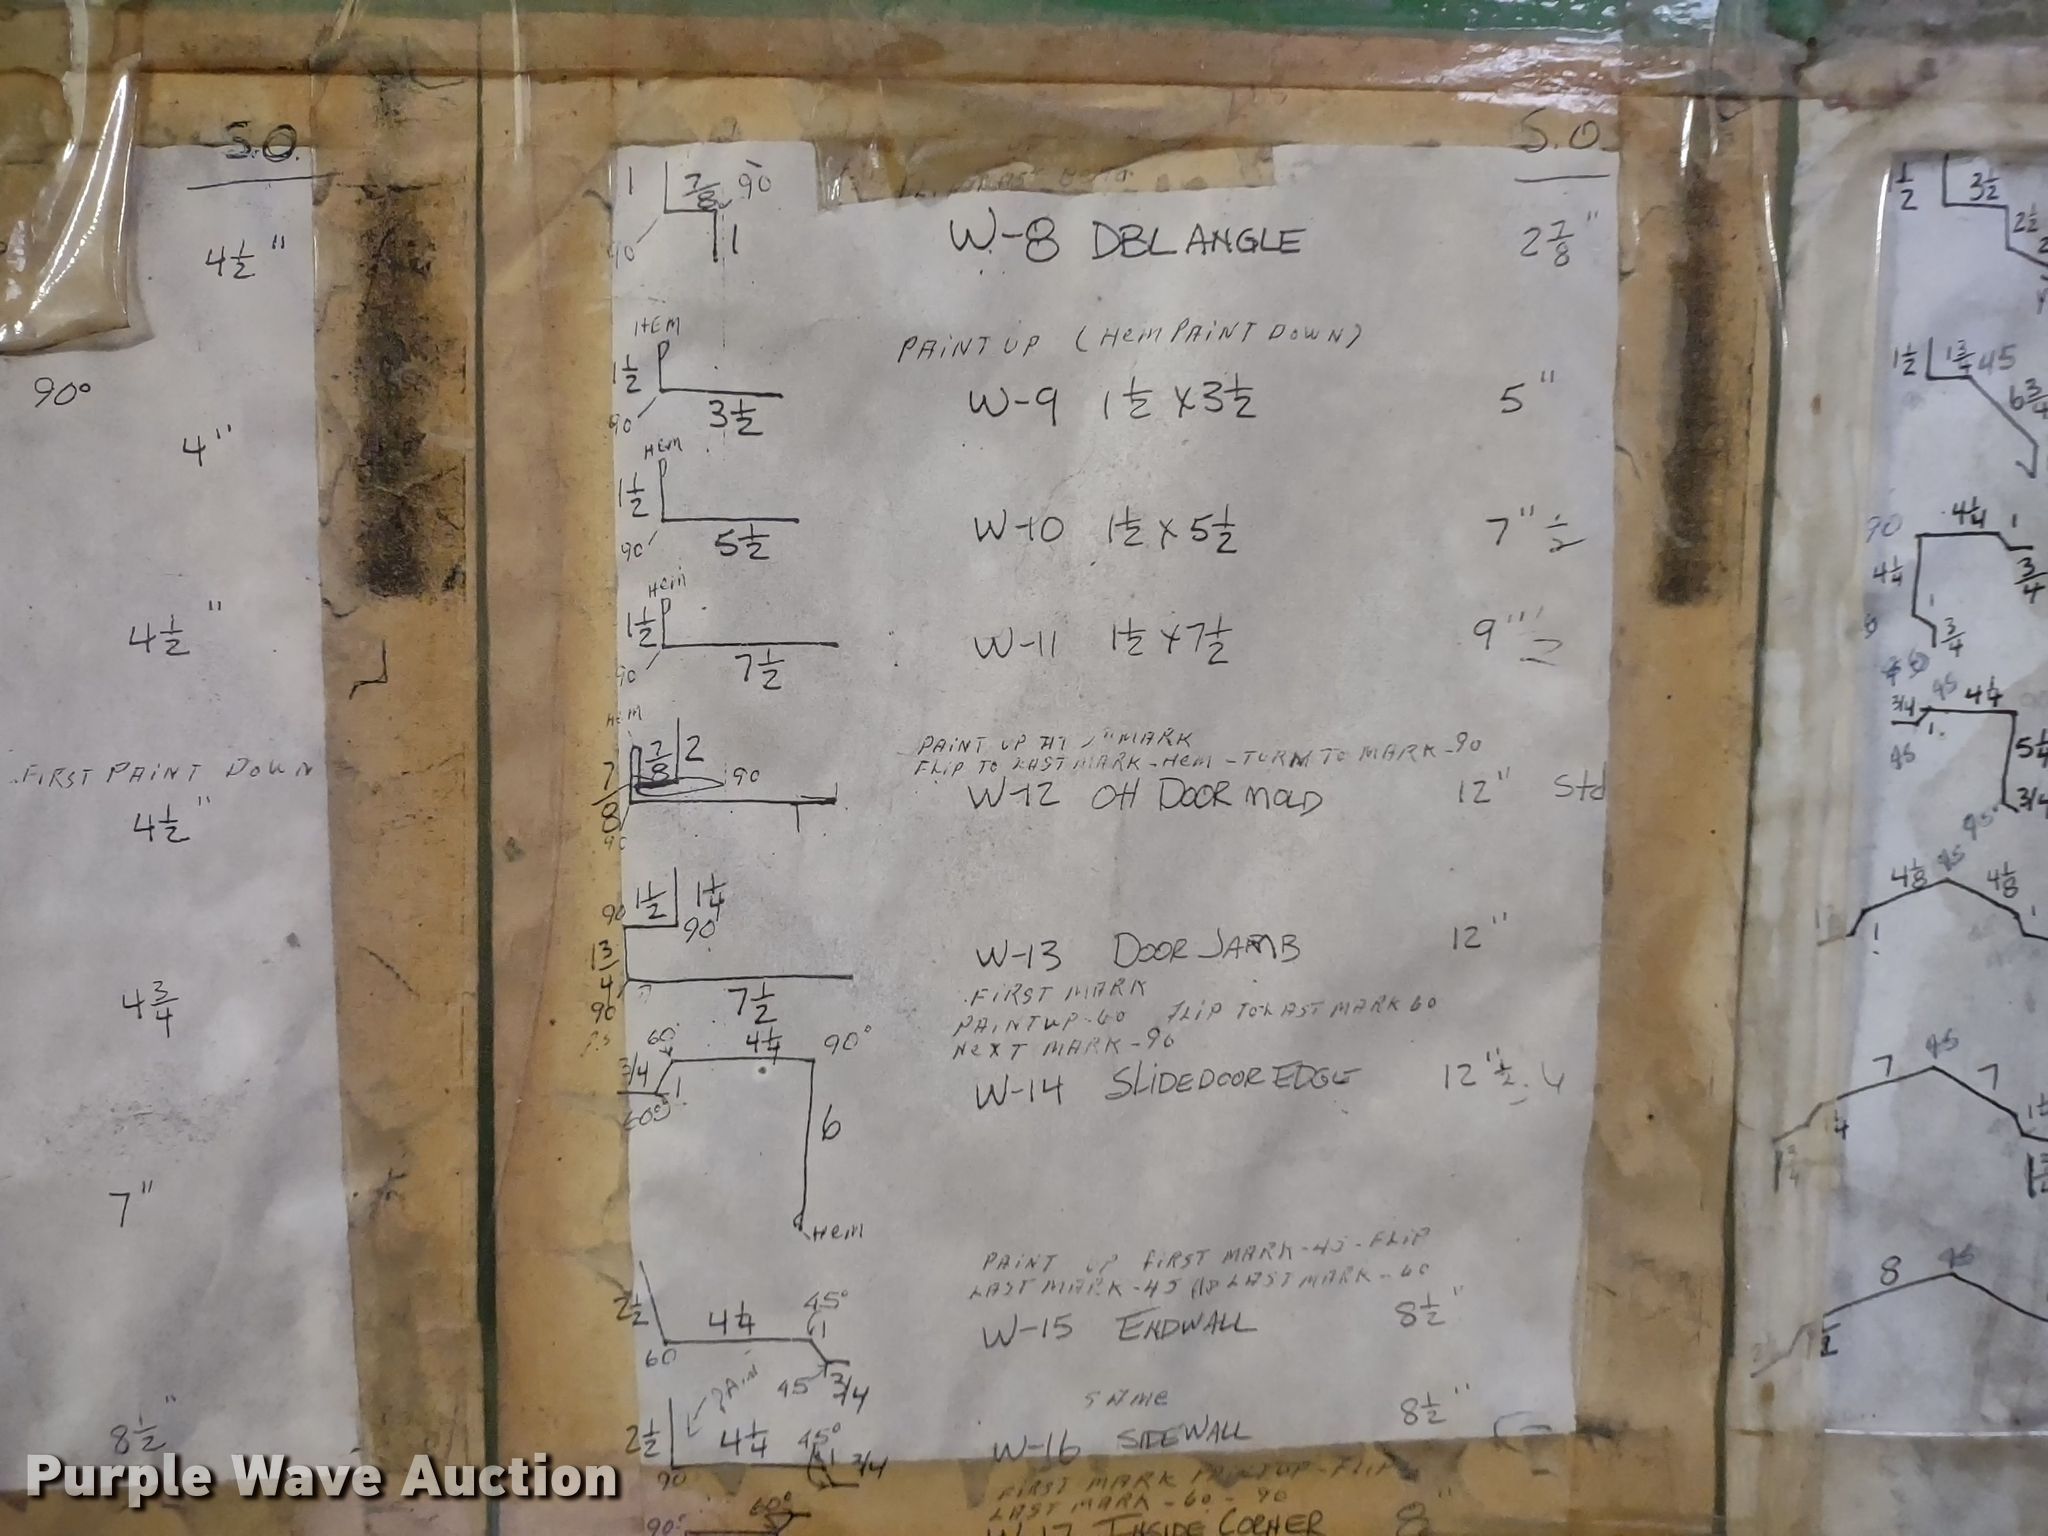 S.O.
4 1/2 "
90°
4 "
4 1/2 "
FIRST PAINT DOWN
4 1/2 "
4 3/4
7 "
8 1/2 "
S.O.
1 7/8 90
90 1
W-8 DBL ANGLE 2 7/8 "
HEM
PAINT UP (HEM PAINT DOWN)
1 1/2
90 3 1/2
W-9 1 1/2 x 3 1/2 5 "
HEM
1 1/2
90 5 1/2
W-10 1 1/2 x 5 1/2 7 " 1/2
HEM
1 1/2
90 7 1/2
W-11 1 1/2 x 7 1/2 9 "
HEM
7/8 2
PAINT UP MARK
FLIP TO LAST MARK-HEM-TURN TO MARK-90
7/8 90
90
W-12 OH DOOR MOLD 12 " STD
90 1 1/2 1 1/4
90
1 3/4
90 7 1/2
W-13 DOOR JAMB 12 "
FIRST MARK
PAINT UP-60 FLIP TO LAST MARK 60
NEXT MARK-90
60 4 1/4 90°
3/4 1
60°
6
HEM
W-14 SLIDE DOOR EDGE 12 " 1/2
PAINT UP FIRST MARK-45-FLIP
LAST MARK-45 LAST MARK-60
2 1/2 4 1/4 45°
1
60
45 3/4
W-15 ENDWALL 8 1/2 "
SAME
2 1/2 4 1/4 45°
1 3/4
90
W-16 SIDEWALL 8 1/2 "
FIRST MARK PAINT UP-FLIP
LAST MARK-60-90
90° 60°
W-17 INSIDE CORNER 8 "
1/2 3 1/2
2 1/2
1 1/2 1 3/4 45
6 3/4
90 4 1/4 1
4 1/4 3/4
1
3/4
3/4 45 4 1/4
1
45 5 1/4
3/4
45°
4 1/8 45 4 1/8
1 1
7 45 7
8 45
Purple Wave Auction